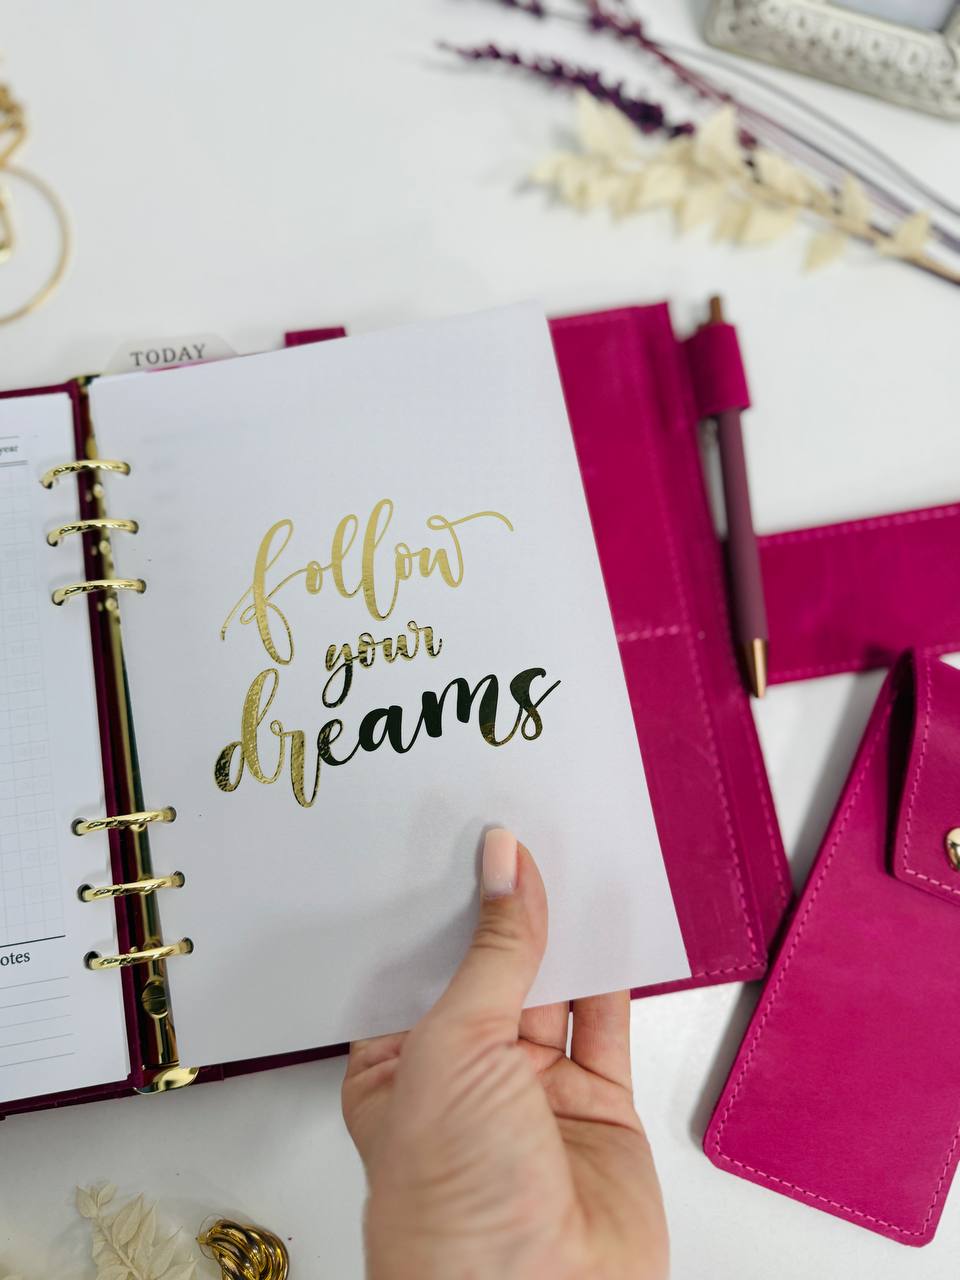 TODAY
year
follow
your
dreams
otes